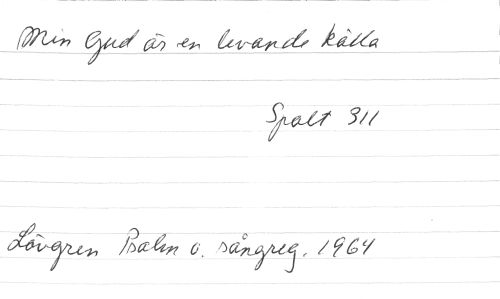 Min Gud är en levande källa
Spalt 311
Lövgren Psalm o. sångreg. 1964